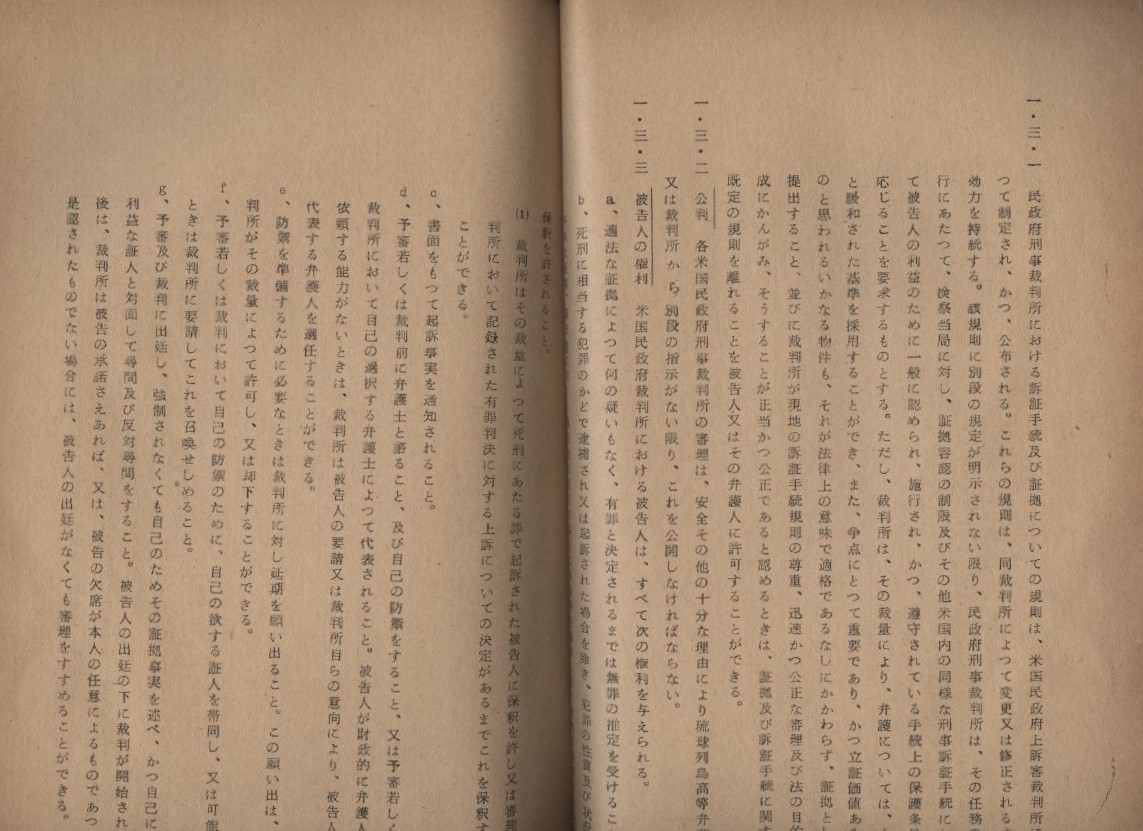 一・三・一　民政府刑事裁判所における訴訟手続及び証拠についての規則は、米国民政府上訴審裁判所
つて制定され、かつ、公布される。これらの規則は、同裁判所によつて変更又は修正される
効力を持続する。該規則に別段の規定が明示されない限り、民政府刑事裁判所は、その任務の
行にあたつて、検察当局に対し、証拠容認の制限及びその他米国内の同様な刑事訴訟手続に
て被告人の利益のために一般に認められ、施行され、かつ、遵守されている手続上の保護条件
応じることを要求するものとする。ただし、裁判所は、その裁量により、弁護については、
と緩和された基準を採用することができ、また、争点にとつて重要であり、かつ立証価値ある
のと思われるいかなる物件も、それが法律上の意味で適格であるなしにかかわらず、証拠とし
提出すること、並びに裁判所が現地の訴訟手続規則の尊重、迅速かつ公正な審理及び法の目的
成にかんがみ、そうすることが正当かつ公正であると認めるときは、証拠及び訴訟手続に関す
既定の規則を離れることを被告人又はその弁護人に許可することができる。
一・三・二　公判　各米国民政府刑事裁判所の審理は、安全その他の十分な理由により琉球列島高等弁
又は裁判所から別段の指示がない限り、これを公開しなければならない。
一・三・三　被告人の権利　米国民政府裁判所における被告人は、すべて次の権利を与えられる。
a、適法な証拠によつて何の疑いもなく、有罪と決定されるまでは無罪の推定を受けるこ
b、死刑に相当する犯罪のかどで逮捕され又は起訴された場合を除き、犯罪の性質及び状
保釈を許されること。
(1)　裁判所はその裁量によつて死刑にあたる罪で起訴された被告人に保釈を許し又は審理
判所において記録された有罪判決に対する上訴についての決定があるまでこれを保釈す
ことができる。
c、書面をもつて起訴事実を通知されること。
d、予審若しくは裁判前に弁護士と諮ること、及び自己の防禦をすること、又は予審若しく
裁判所において自己の選択する弁護士によつて代表されること。被告人が財政的に弁護人
依頼する能力がないときは、裁判所は被告人の要請又は裁判所自らの意向により、被告人
代表する弁護人を選任することができる。
e、防禦を準備するために必要なときは裁判所に対し延期を願い出ること。この願い出は、
判所がその裁量によつて許可し、又は却下することができる。
f、予審若しくは裁判において自己の防禦のために、自己の欲する証人を帯同し、又は可能
ときは裁判所に要請してこれを召喚せしめること。
g、予審及び裁判に出廷し、強制されなくても自己のためその証拠事実を述べ、かつ自己に
利益な証人と対面して尋問及び反対尋問をすること。被告人の出廷の下に裁判が開始され
後は、裁判所は被告の承諾さえあれば、又は、被告の欠席が本人の任意によるものであつ
是認されたものでない場合には、被告人の出廷がなくても審理をすすめることができる。